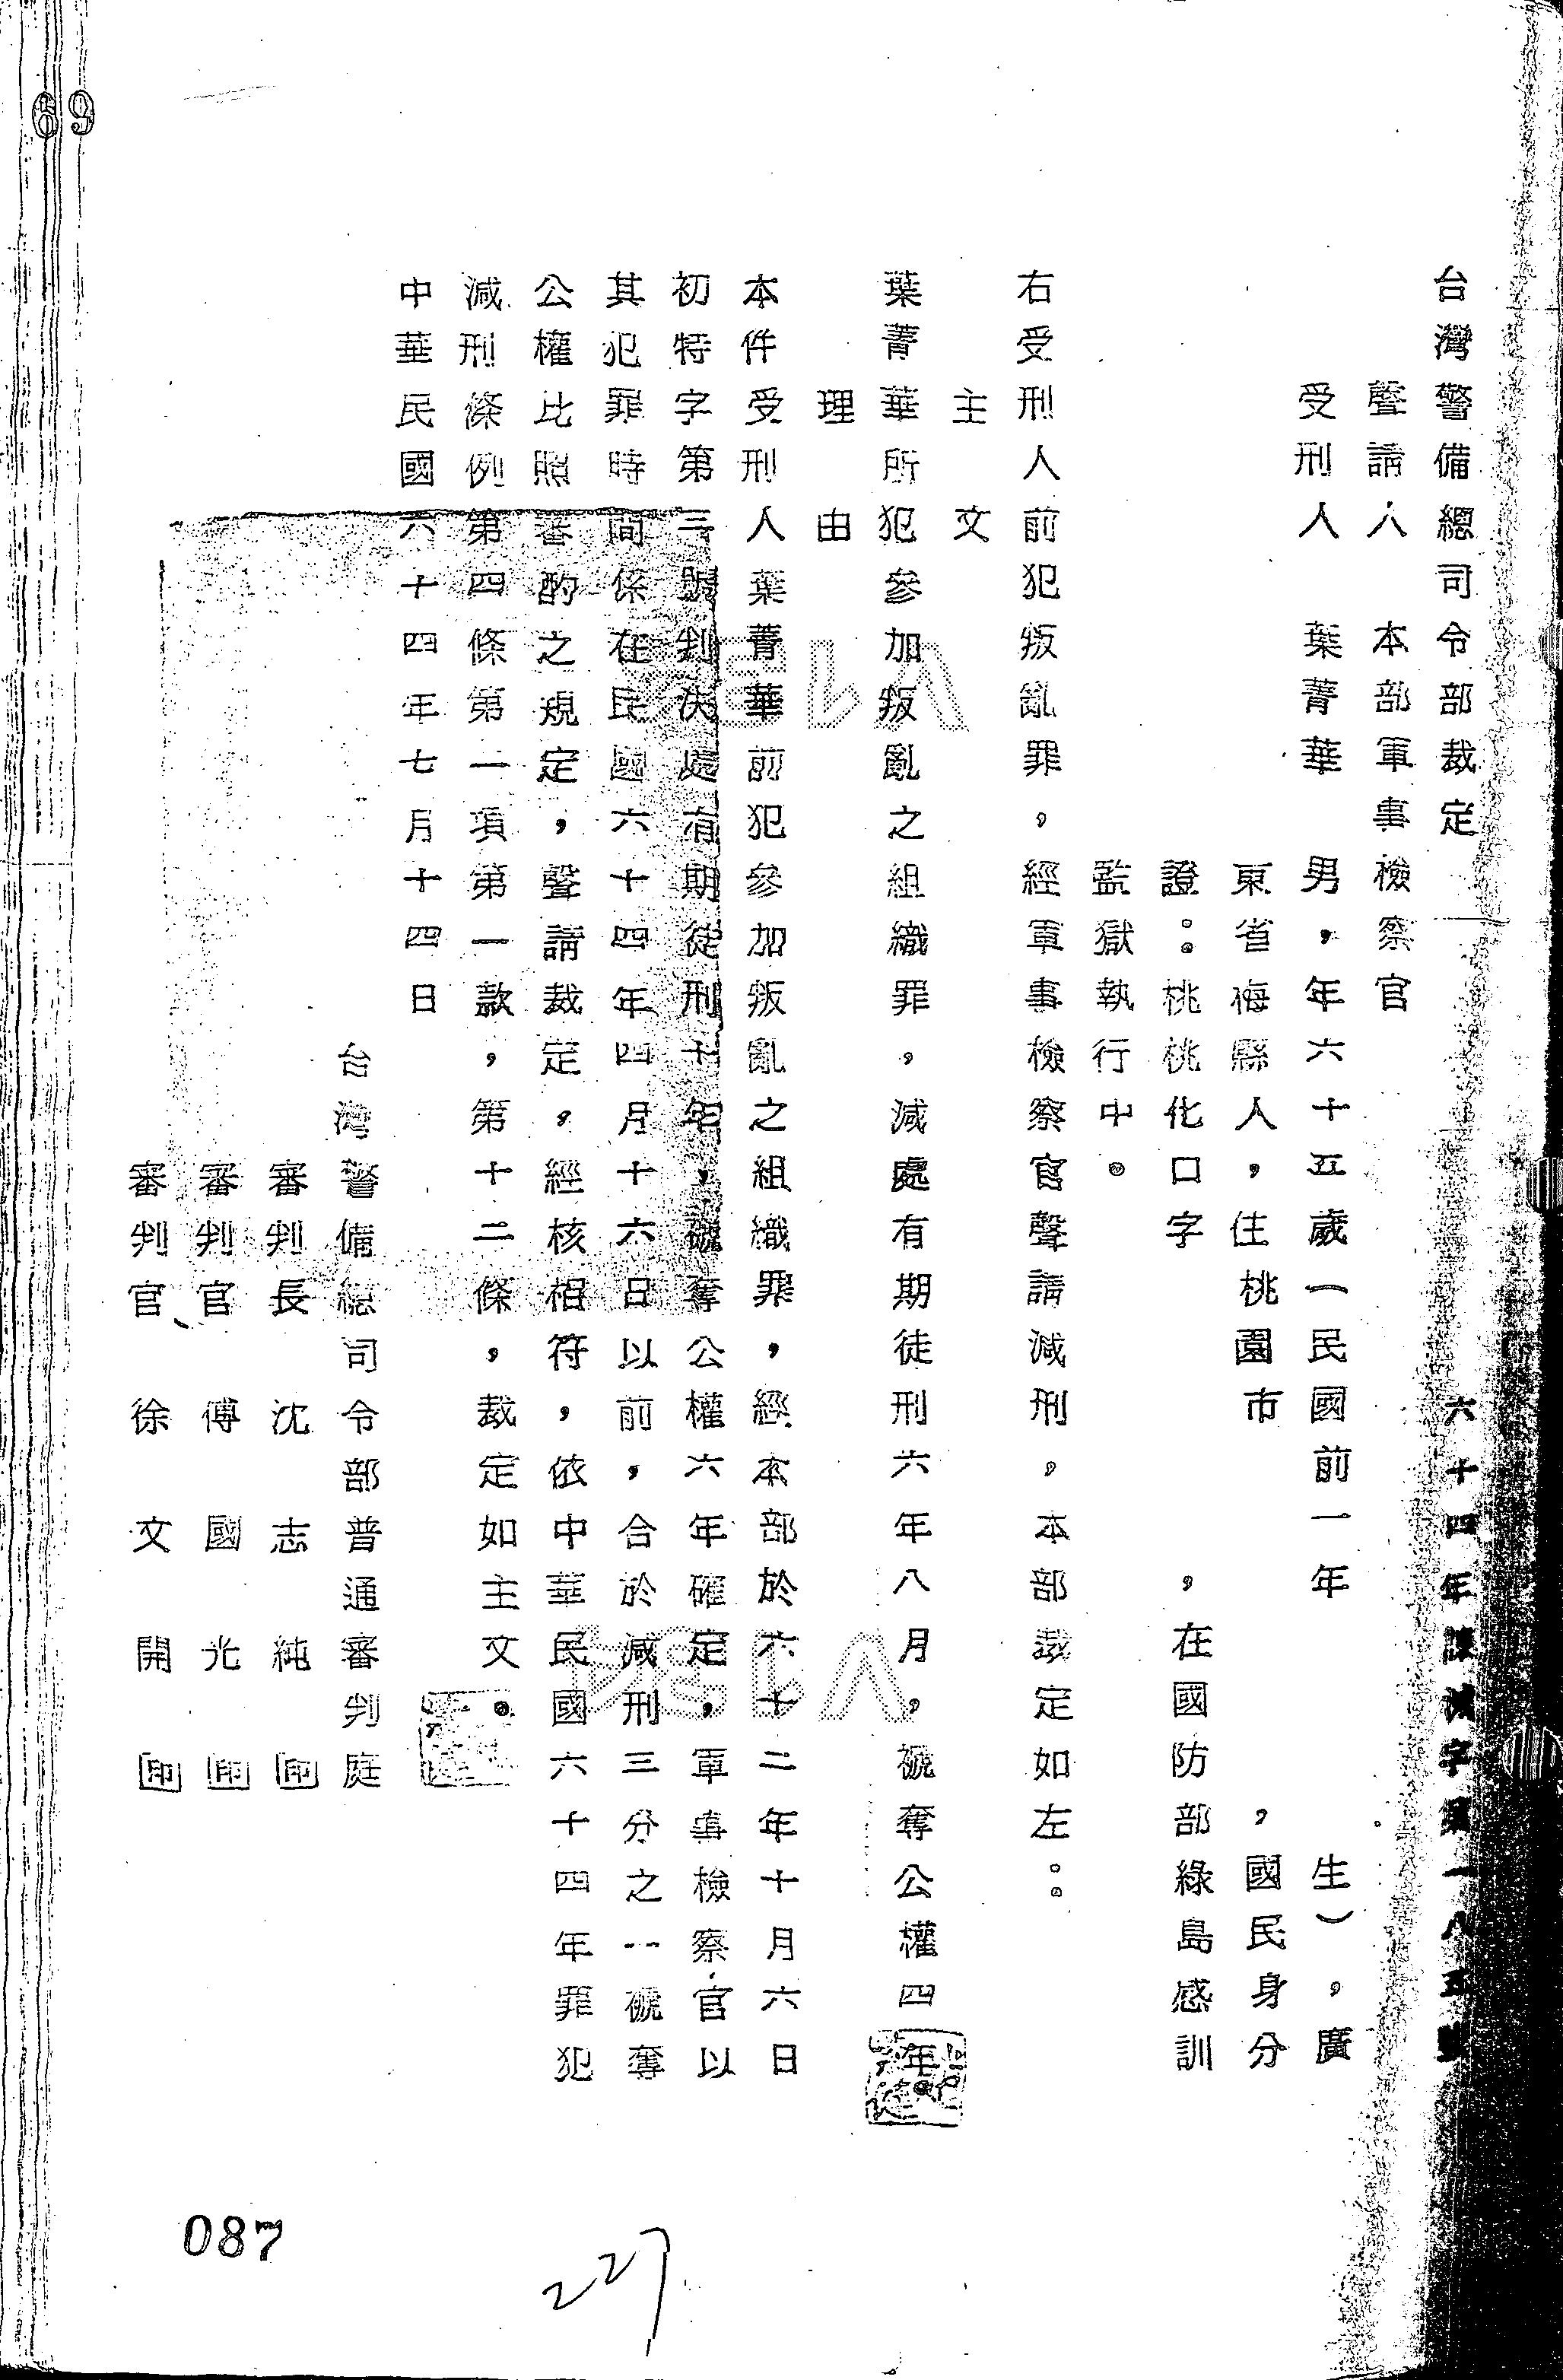 台灣警備總司令部裁定 六十四年諫減字第一八五號
聲請人 本部軍事檢察官
受刑人 葉菁華 男，年六十五歲（民國前一年 生），廣
東省梅縣人，住桃園市 ，國民身分
證：桃桃化口字 ，在國防部綠島感訓
監獄執行中。
右受刑人前犯叛亂罪，經軍事檢察官聲請減刑，本部裁定如左：
主文
葉菁華所犯參加叛亂之組織罪，減處有期徒刑六年八月，褫奪公權四年
理由
本件受刑人葉菁華前犯參加叛亂之組織罪，經本部於六十二年十月六日
初特字第三號判決處有期徒刑十年，褫奪公權六年確定，軍事檢察官以
其犯罪時間係在民國六十四年四月十六日以前，合於減刑三分之一褫奪
公權比照審酌之規定，聲請裁定，經核相符，依中華民國六十四年罪犯
減刑條例第四條第一項第一款，第十二條，裁定如主文。
中華民國六十四年七月十四日
台灣警備總司令部普通審判庭
審判長 沈志純 印
審判官 傅國光 印
審判官 徐文開 印
69
087
227